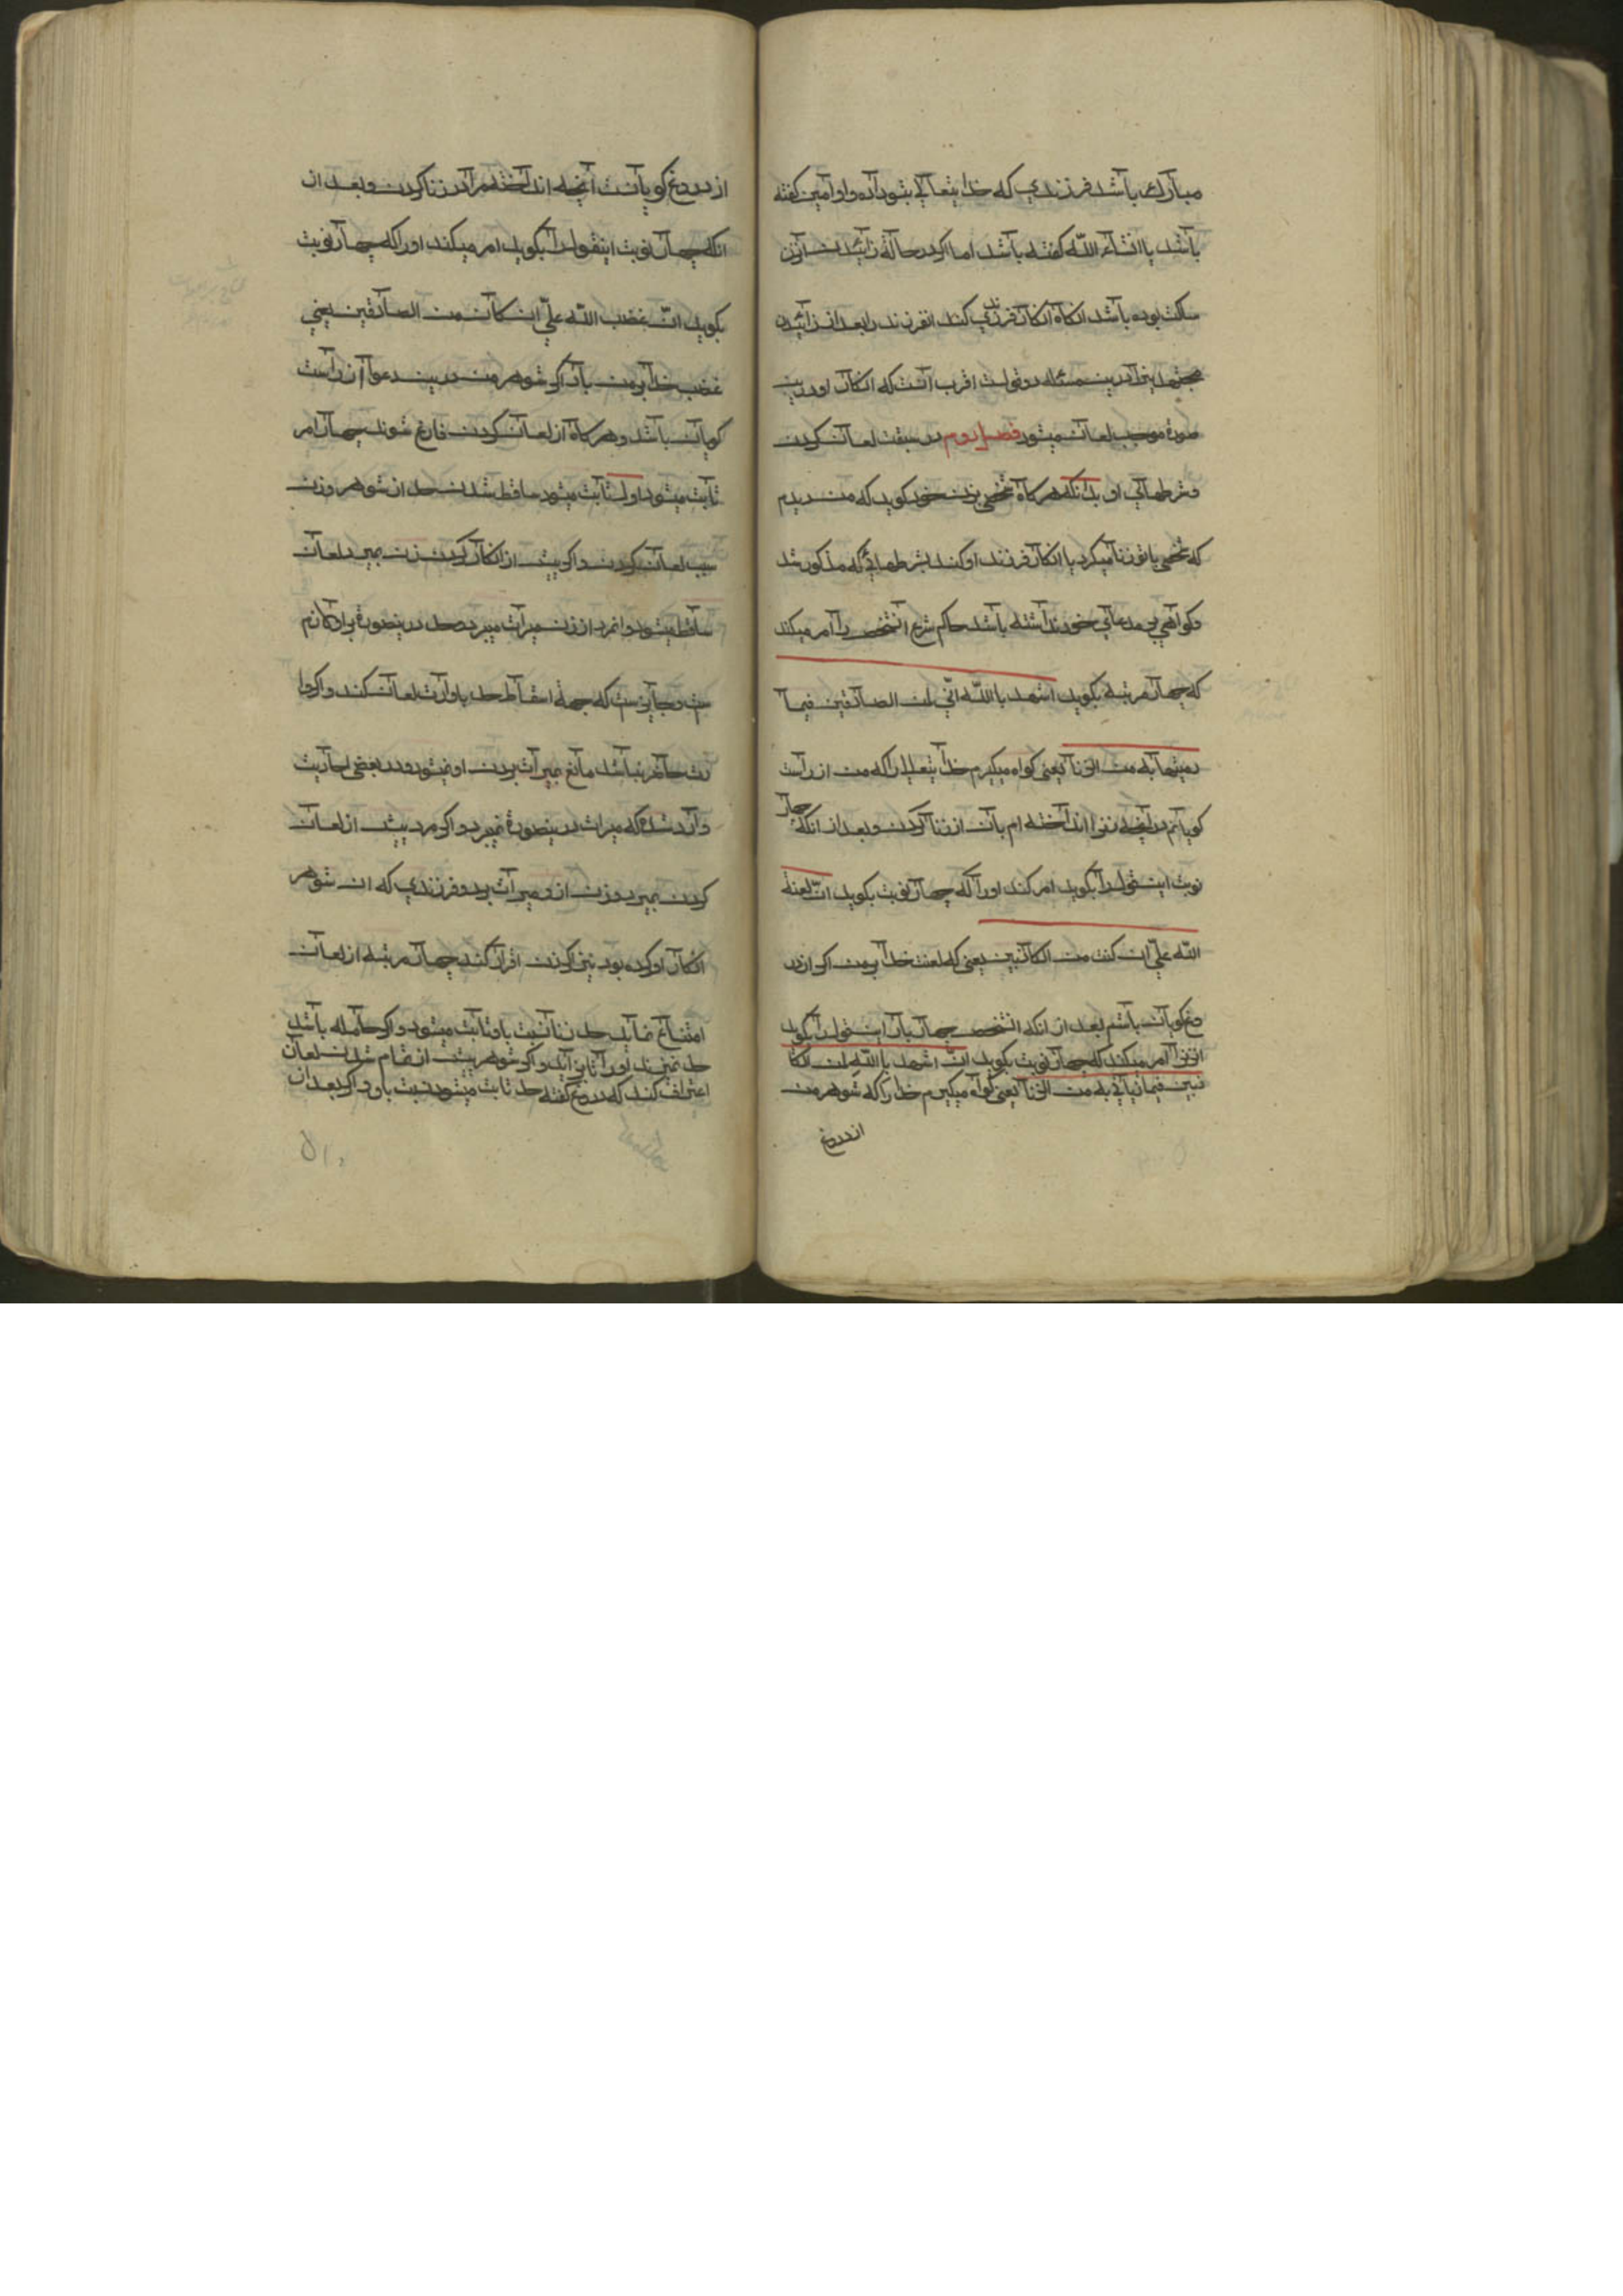 مبارک باشد فرزندی که خدایتعالی بتو داده و او آمین گفته
باشد یا انشاء الله گفته باشد اما اگر در حالة زائیدن آنزن
ساکت بوده باشد انکاه انکار فرزندی کند انفرزند را بعد از زائیدن
مجتهدین را درین مسئله دو قولست اقرب آنست که انکار او درین
صورة موجب لعان میشود فصل دوم در سبقت لعان کردن
وشرطهای او بدانکه هرکاه شخصی بزن خود کوید که من دیدم
که شخصی با تو زنا میکرد یا انکار فرزند او کند بشرطهایی که مذکور شد
وکواهی بر مدعای خود نداشته باشد حاکم شرع انشخص را امر میکند
که چهار مرتبه بکوید اشهد باالله انّی لمن الصادقین فیما
رمیتها به من الزنا یعنی کواه میکیرم خدایتعالی را که من از راست
کویانم در آنچه زنرا انداخته ام بان از زنا کردن وبعد از انکه چهار
نوبت این قول را بکوید امر کند او را که چهار نوبت بکوید انّ لعنة
الله علیّ ان کنت من الکاذبین یعنی که لعنت خدا بر من اکر از در
وغ کویان باشم بعد از انکه انشخص چهار بار این قول را بکوید
انزنرا امر میکند که چهار نوبت بکوید انّ اشهد باالله لمن الکا
ذبین فیما رمانی به من الزنا یعنی کواه میکیرم خدا را که شوهر من
از دروغ
از دروغ کویانست آنچه انداخته مرا در زنا کردن وبعد از
انکه چهار نوبت اینقول را بکوید امر میکند او را که چهار نوبت
بکوید انّ غضب الله علیّ ان کان من الصادقین یعنی
غضب خدا بر من باد اکر شوهر من درین دعوا از راست
کویان باشد وهرکاه از لعان کردن فارغ شوند چهار امر
ثابت میشود اول ثابت میشود ساقط شدن حد از شوهر وزن
بسبب لعان کردن واکر پیش از انکار کردن زن بمیرد لعان
ساقط میشود وانمرد از زن میراث میبرد وحد درینصورة برو لازم
ست وجایزست که جهة اسقاط حد با وارث لعان کند واکر وا
رث حاضر نباشد مانع میراث بردن او نمیشود ودر بعضی احادیث
وارد شده که میراث درینصورة نمیبرد واکر مرد پیش از لعان
کردن بمیرد وزن از و میراث برد وفرزندی که ان شوهر
انکار او کرده بود نیز اکر زن اقرار کند چهار مرتبه از لعان
امتناع نماید حد زنا نسبت باو ثابت میشود واکر حامله باشد
حد نمیزنند او را تا بزاید واکر شوهر پیش از تمام شدن لعان
اعتراف کند که دروغ گفته حد ثابت میشود نسبت باو واکر بعد از